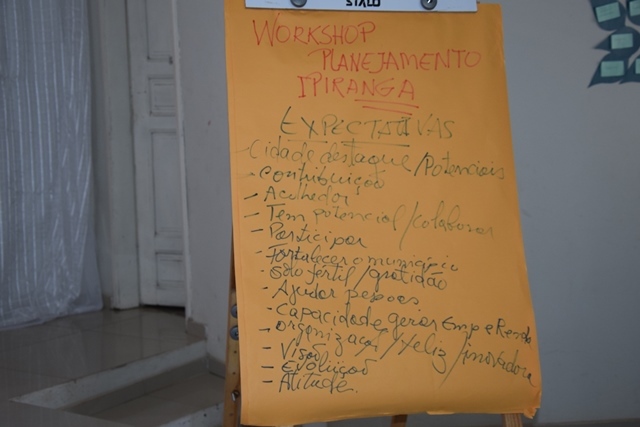 STALO
WORKSHOP
PLANEJAMENTO
IPIRANGA
EXPECTATIVAS
- Cidade destaque/Potenciais
- Contribuição
- Acolhedor
- Tem potencial/colaborar
- Participar
- Fortalecer o município
- Solo fértil/gratidão
- Ajudar pessoas
- Capacidade gerar Emp e Renda
- organização/feliz/inovadora
- Visão
- Evolução
- Atitude